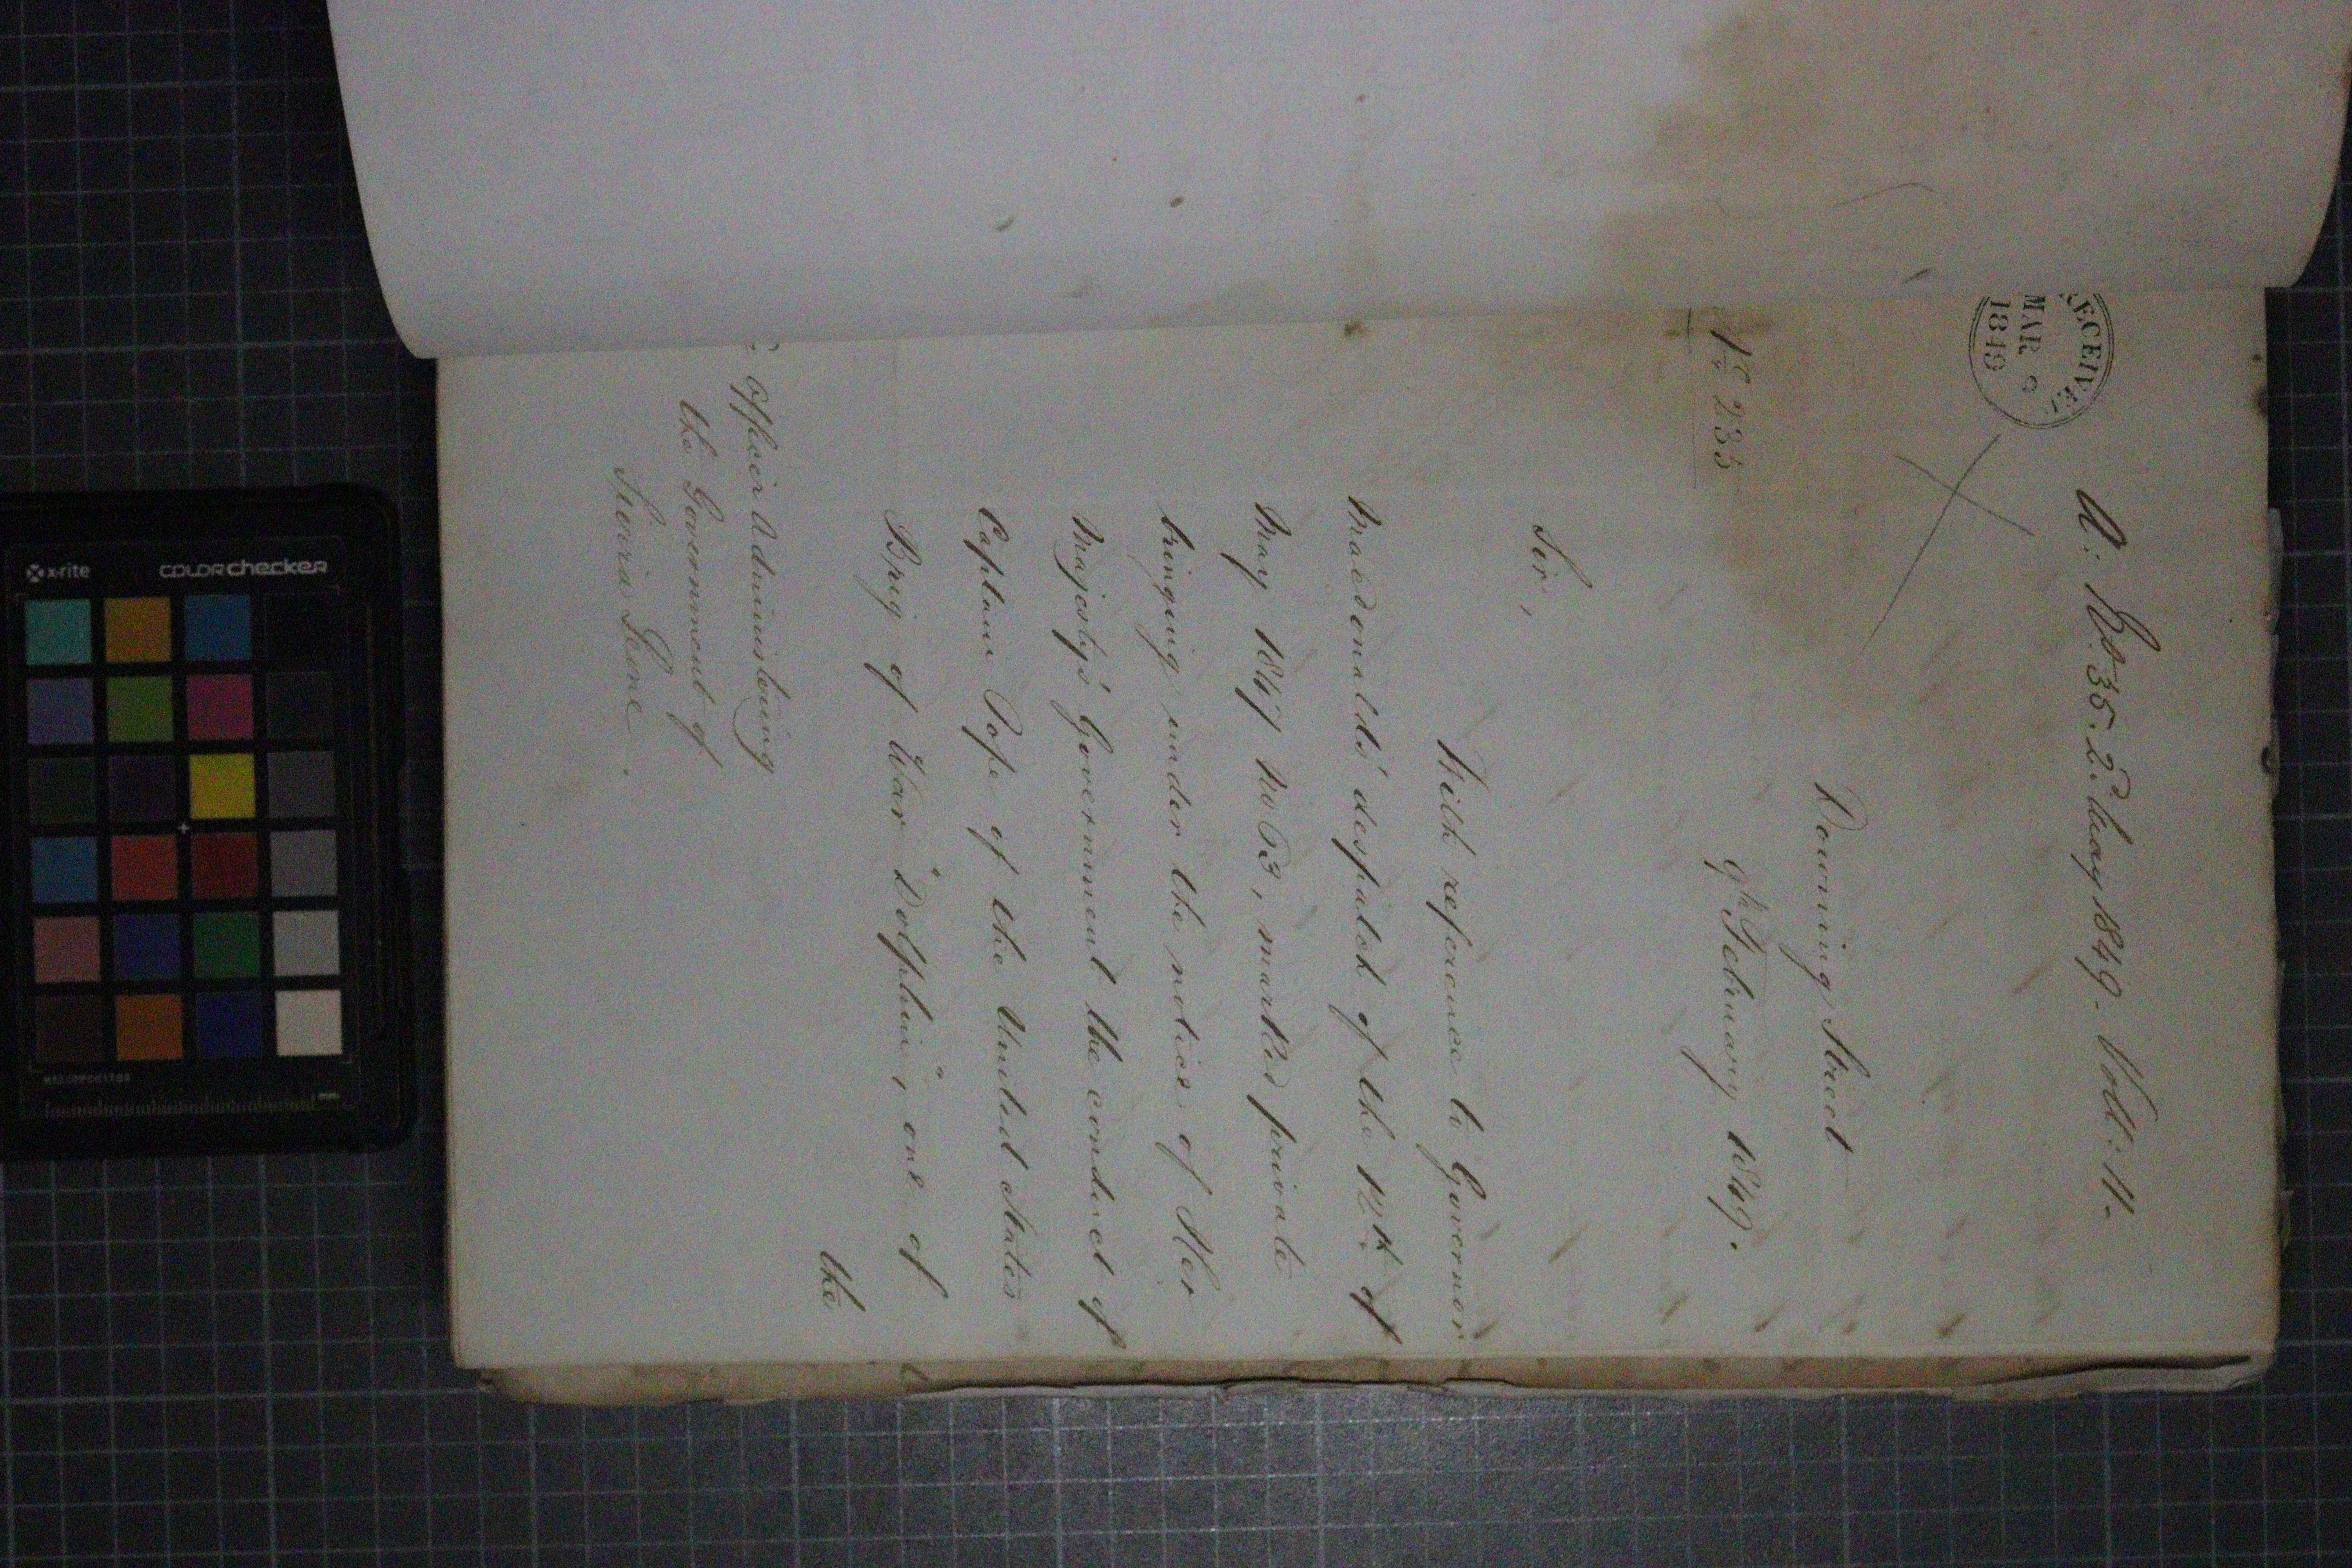 A: No. 35. 2d. May 1849. Voll: 11.
RECEIVE
MAR
1849
Downing Street
9th February 1849.
No 235
Sir,
With reference to Governor
Macdonald's despatch of the 12th of
May 1847 No 63, marked private
bringing under the notice of Her
Majesty's Government the conduct of
Captain Pope of the United States
Brig of War "Dolphin", one of
the
Officer Administering
the Government of
Sierra Leone.
x-rite
colorchecker
mm